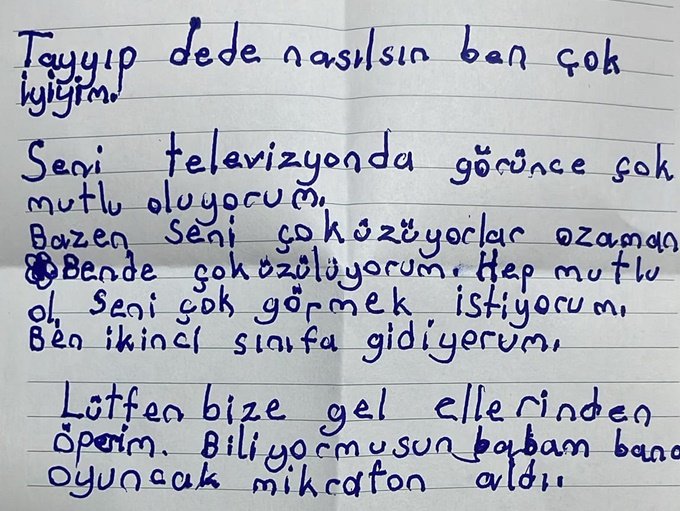 Tayyıp dede nasılsın ben çok
iyiyim.
Seni televizyonda görünce çok
mutlu oluyorum.
Bazen seni çoküzüyorlar ozaman
Bende çoküzülüyorum. Hep mutlu
ol. Seni çok görmek istiyorum.
Ben ikinci sınıfa gidiyorum.
Lütfen bize gel ellerinden
öperim. Biliyormusun babam bana
oyuncak mikrafon aldı.